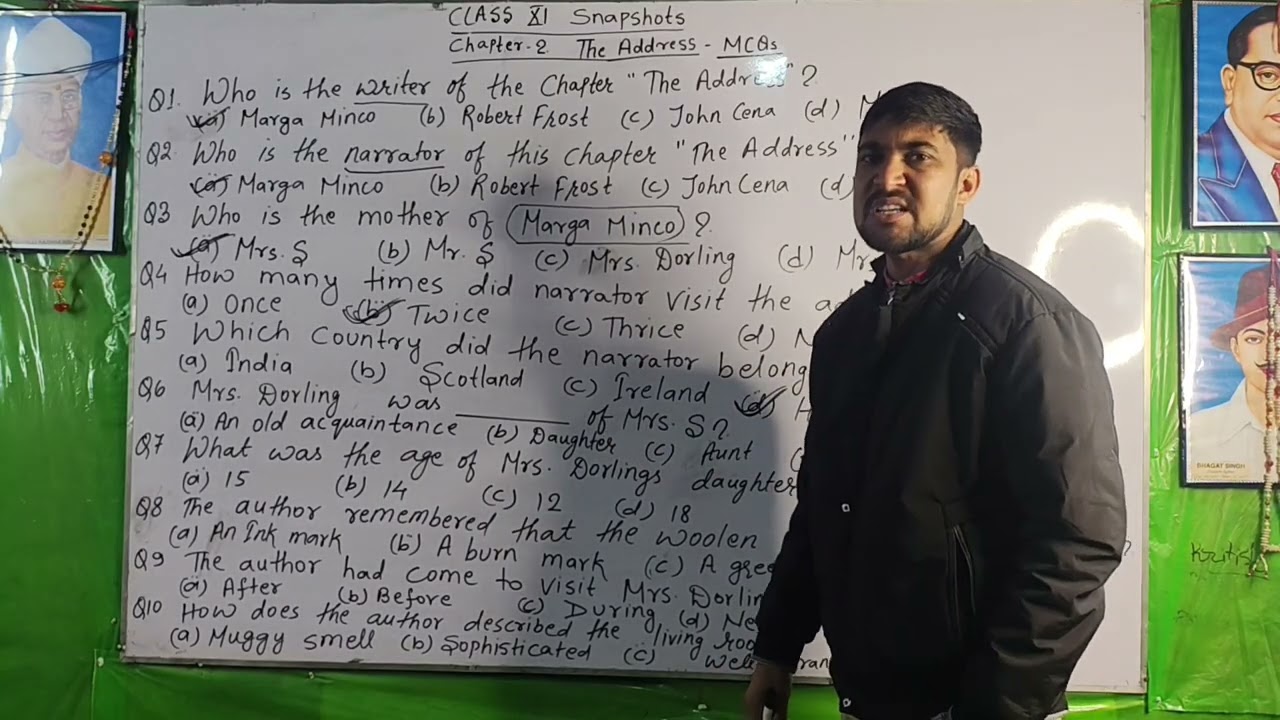 CLASS XI Snapshots
Chapter-2 The Address - MCQs
Q1. Who is the writer of the Chapter "The Address"?
(a) Marga Minco (b) Robert Frost (c) John Cena (d)
Q2. Who is the narrator of this Chapter "The Address"
(a) Marga Minco (b) Robert Frost (c) John Cena (d)
Q3 Who is the mother of Marga Minco ?
(a) Mrs. S (b) Mr. S (c) Mrs. Dorling (d)
Q4 How many times did narrator visit the
(a) Once (b) Twice (c) Thrice (d)
Q5 Which country did the narrator belong
(a) India (b) Scotland (c) Ireland (d)
Q6 Mrs. Dorling was ______ of Mrs. S?
(a) An old acquaintance (b) Daughter (c) Aunt
Q7 What was the age of Mrs. Dorlings daughter
(a) 15 (b) 14 (c) 12 (d) 18
Q8 The author remembered that the woolen
(a) An Ink mark (b) A burn mark (c) A
Q9 The author had come to visit Mrs.
(a) After (b) Before (c) During (d)
Q10 How does the author described the living
(a) Muggy smell (b) Sophisticated (c)
BHAGAT SINGH